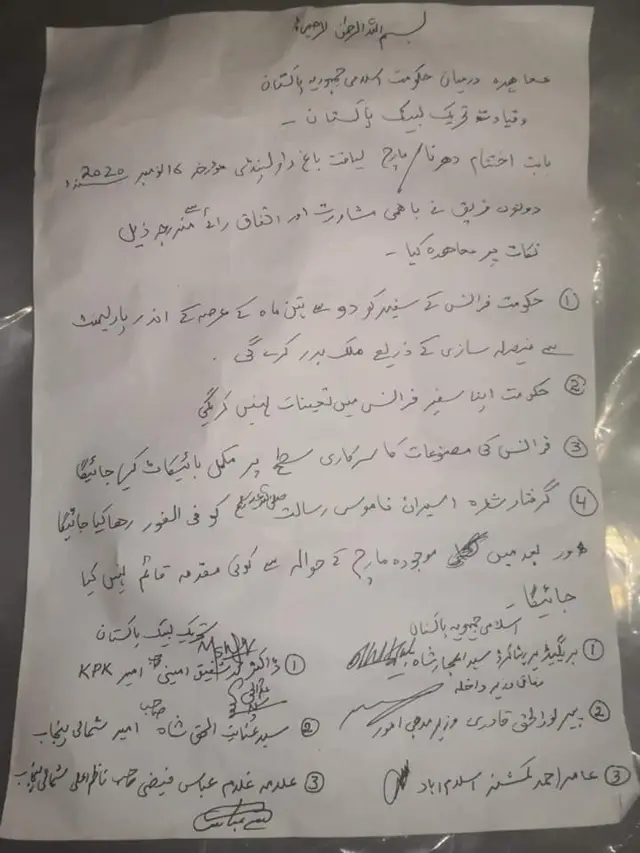 بسم اللہ الرحمٰن الرحیم
معاہدہ درمیان حکومت اسلامی جمہوریہ پاکستان
و قیادت تحریک لبیک پاکستان ۔
بابت اختتام دھرنا/مارچ لیاقت باغ راولپنڈی مورخہ 16 نومبر 2020
دونوں فریق نے باہمی مشاورت اور اتفاق رائے سے مندرجہ ذیل
نکات پر معاہدہ کیا ۔
① حکومت فرانس کے سفیر کو دو سے تین ماہ کے عرصہ کے اندر پارلیمنٹ
سے فیصلہ سازی کے ذریعے ملک بدر کرے گی .
② حکومت اپنا سفیر فرانس میں تعینات نہیں کریگی
③ فرانس کی مصنوعات کا سرکاری سطح پر مکمل بائیکاٹ کیا جائیگا
④ گرفتار شدہ اسیران ناموس رسالت صلی اللہ علیہ وسلم کو فی الفور رہا کیا جائیگا
اور بعد میں موجودہ مارچ کے حوالہ سے کوئی مقدمہ قائم نہیں کیا
جائیگا ۔
اسلامی جمہوریہ پاکستان
① بریگیڈیر ریٹائرڈ سید اعجاز شاہ
وفاقی وزیر داخلہ
② پیر نور الحق قادری وزیر مذہبی امور
③ عامر احمد کمشنر اسلام اباد
تحریک لبیک پاکستان
① ڈاکٹر محمد شفیق امینی صاحب امیر KPK
② سید عنایت الحق شاہ صاحب امیر شمالی پنجاب
③ علامہ غلام عباس فیضی صاحب ناظم اعلی شمالی پنجاب